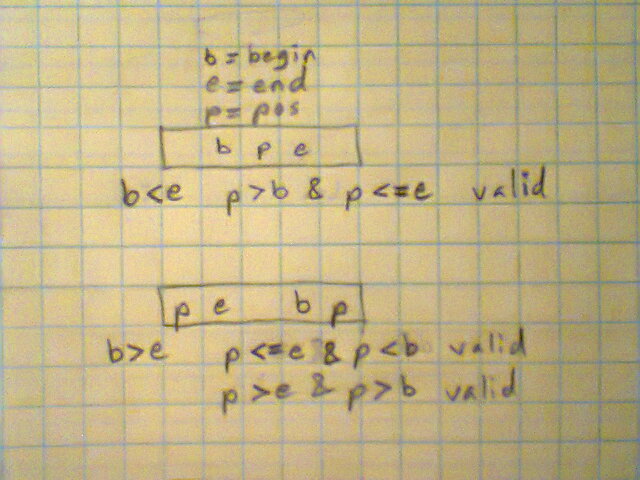 b = begin
e = end
p = pos
b p e
b<e p>b & p<=e valid
p e b p
b>e p<=e & p<b valid
p>e & p>b valid